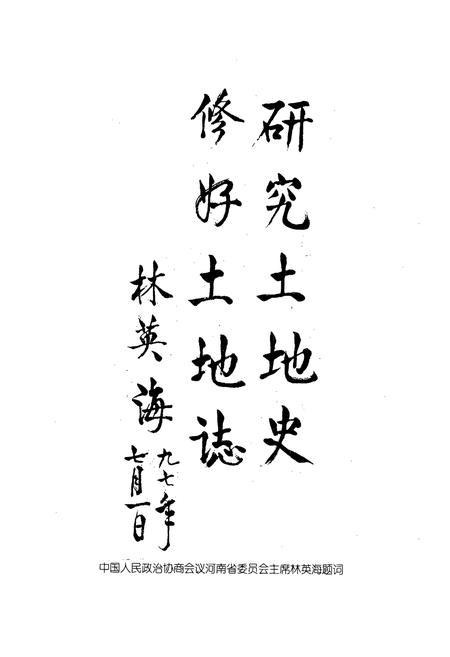 研究土地史
修好土地誌
林英海
九七年
七月一日
中国人民政治协商会议河南省委员会主席林英海题词